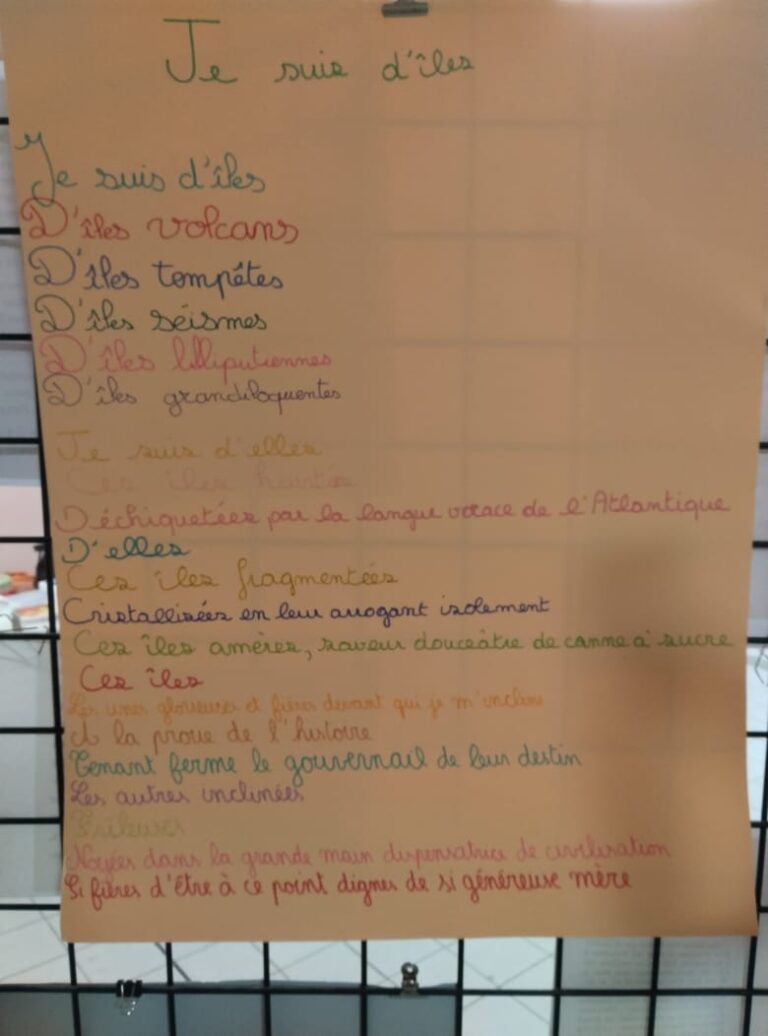 Je suis d'îles
Je suis d'îles
D'îles volcans
D'îles tempêtes
D'îles séismes
D'îles lilliputiennes
D'îles grandiloquentes
Je suis d'elles
Ces îles
Déchiquetées par la langue vorace de l'Atlantique
D'elles
Ces îles fragmentées
Cristallisées en leur arrogant isolement
Ces îles amères, saveur douceâtre de canne à sucre
Ces îles
Les unes glorieuses et fières devant qui je m'incline
A la proue de l'histoire
Tenant ferme le gouvernail de leur destin
Les autres inclinées
Noyées dans la grande main dispensatrice de civilisation
Si fières d'être à ce point dignes de si généreuse mère